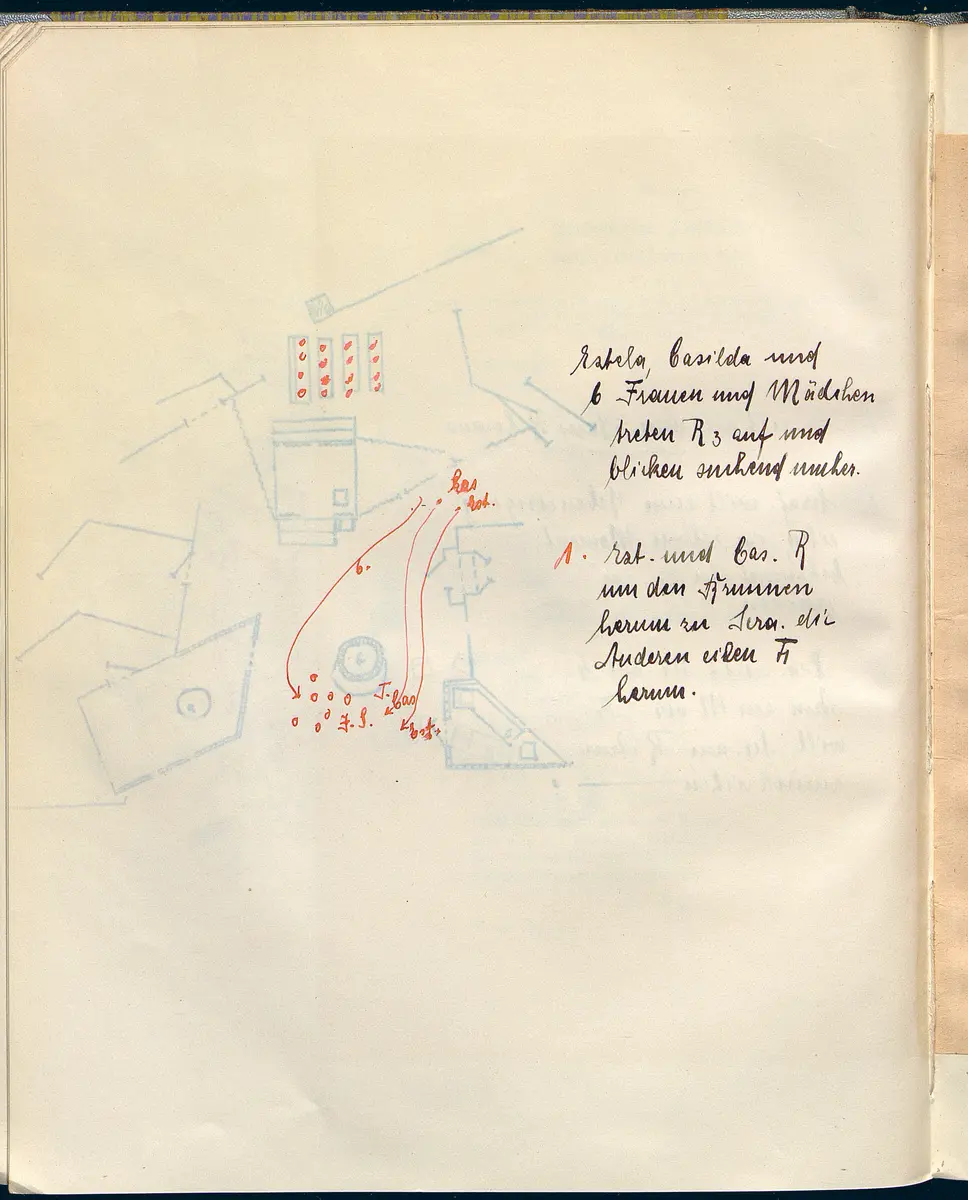 Estela, Casilda und
6 Frauen und Mädchen
treten R 3 auf und
blicken suchend umher.
Cas
Est.
1. Est. und Cas. R
um den Brunnen
6.
herum zu Sera. die
Anderen eilen
herum.
J. Cas
J. S.
Est.